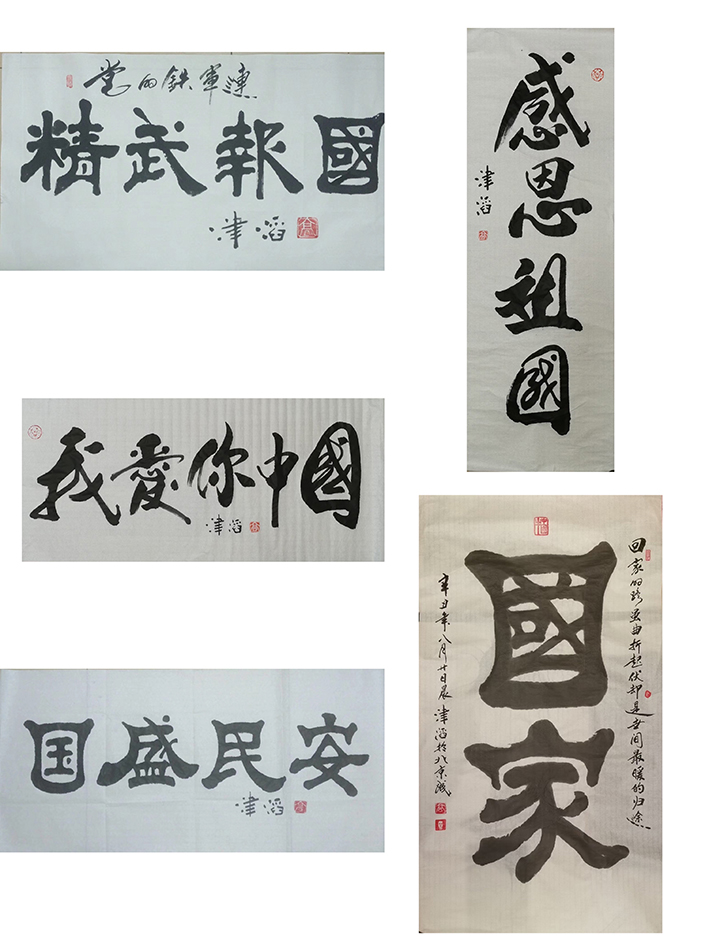 党的鉄軍
精武報國
津滔
感恩祖國
津滔
我愛你中國
津滔
回家的路虽曲折起伏却是世间最暖的归途
國家
辛丑年八月廿日晨津滔於北京城
国盛民安
津滔